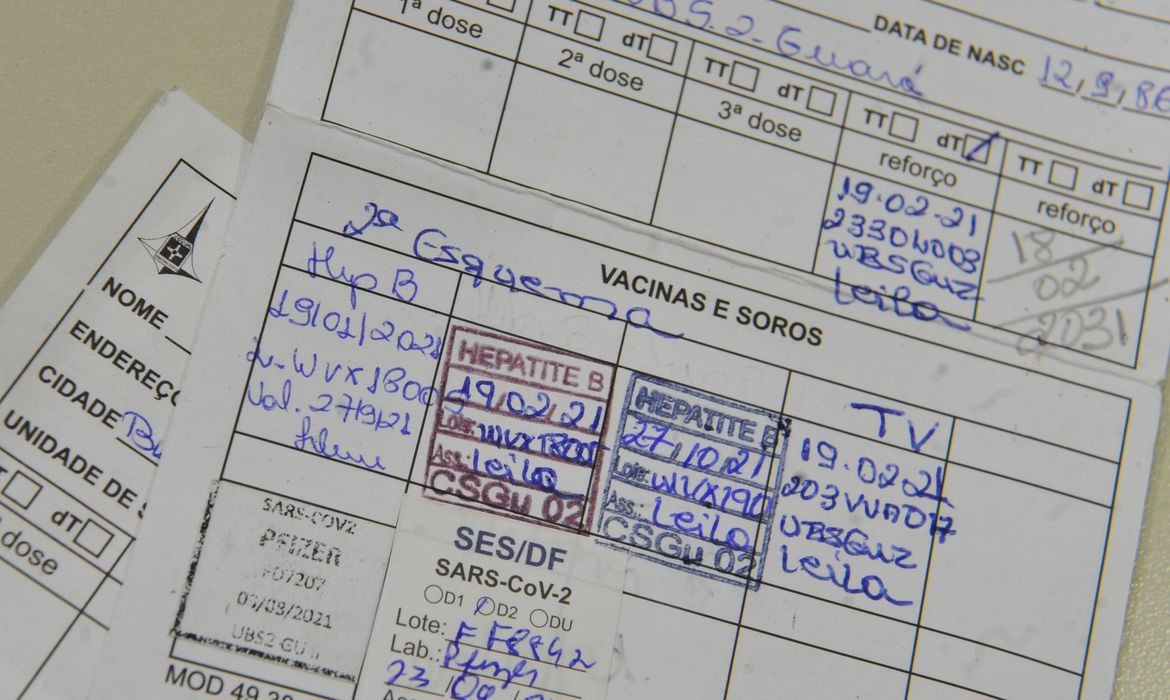 UBS.2-Guará
DATA DE NASC 12,9,86
1ª dose
TT dT
2ª dose
TT dT
3ª dose
TT dT
reforço
19.02.21
UBSGU2
Leila
TT dT
reforço
18
02
2031
VACINAS E SOROS
2º Esquema
Hep B
19/01/2021
Val. 27/9/21
HEPATITE B
19/02/21
Lote:
Ass.: Leila
CSGu 02
HEPATITE B
27/10/21
Lote: WVX190
Ass.: Leila
CSGu 02
TV
19.02.21
UBSGU2
Leila
SARS-COV2
PFIZER
FD7207
UBS2 GU
SES/DF
SARS-CoV-2
D1 D2 DU
Lote: FF8842
Lab.: Pfizer
MOD 49
NOME
ENDEREÇ
CIDADE
UNIDADE DE
dT
dose